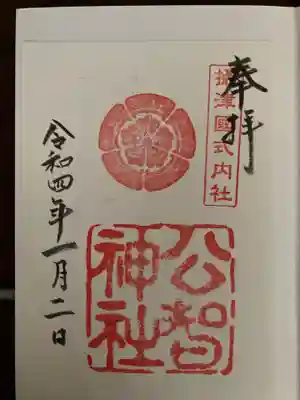 奉拝
摂津国式内社
公智
神社
令和四年一月二日